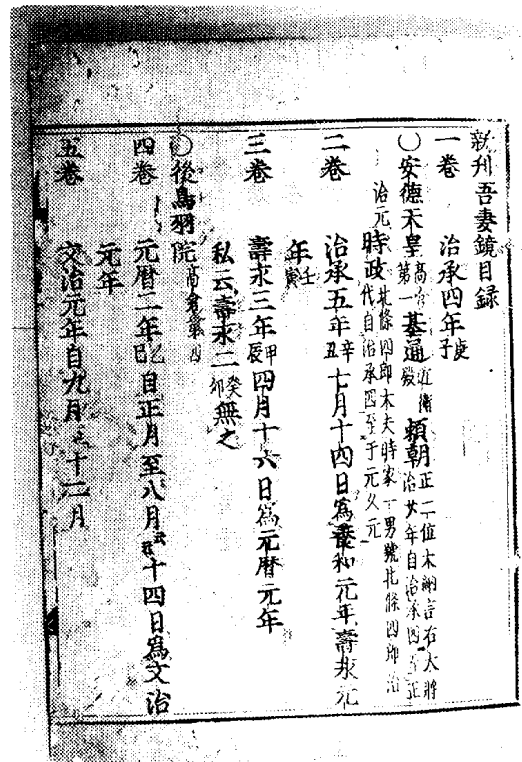 新刊吾妻鏡目録
一巻 治承四年庚子
○安德天皇高倉第一 基通近衛殿 頼朝正二位大納言右大將治廿年自治承四至正
治元 時政北條四郎大夫時家一男號北條四郎治代自治承四至于元久元
二巻 治承五年辛丑七月十四日爲養和元年壽永元
年壬寅
三巻 壽永三年甲辰四月十六日爲元暦元年
私云壽永二癸卯無之
○後鳥羽院高倉第四
四巻 元暦二年乙巳自正月至八月 十四日爲文治
元年
五巻 文治元年自九月至十二月